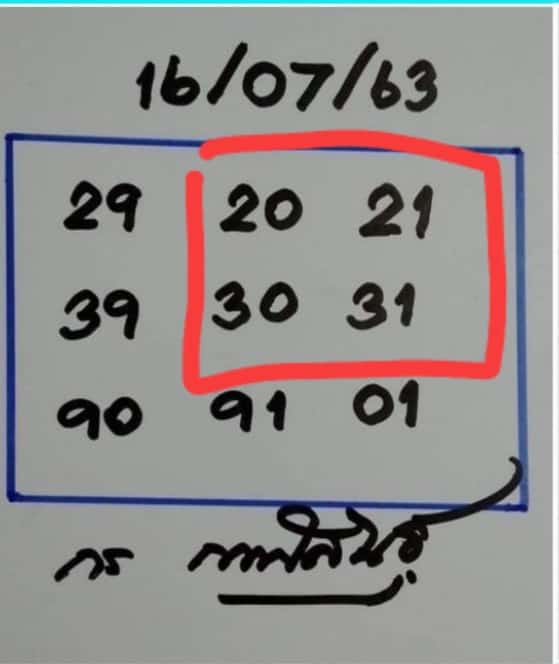 16/07/63
29 20 21
39 30 31
90 91 01
กร กาฬสินธุ์